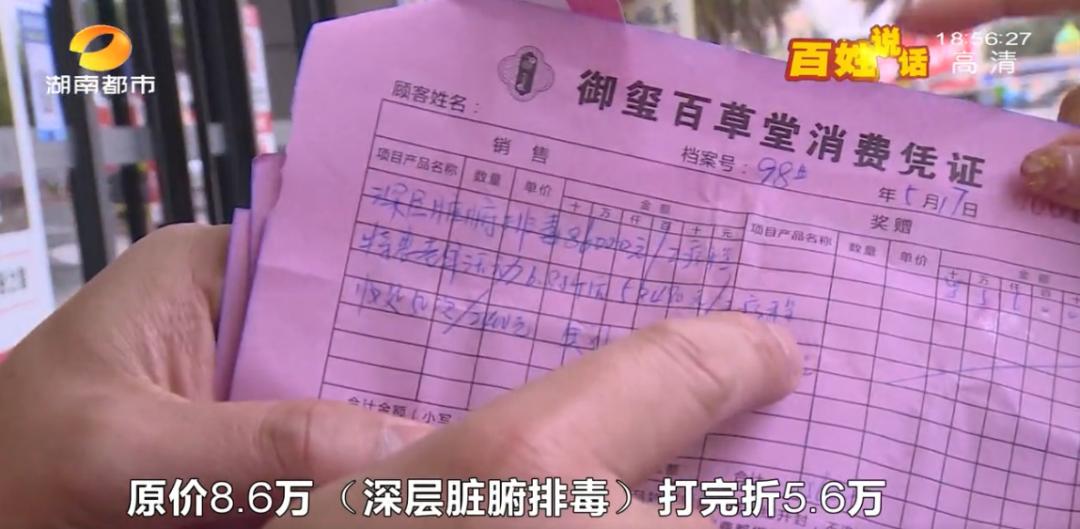 湖南都市
百姓说话
18:56:27
高清
御玺百草堂消费凭证
顾客姓名：
档案号：98
年5月17日
销售
奖赠
项目产品名称 数量 单价 金额 项目产品名称 数量 单价 金额
十万仟百十元 十万仟百
深层脏腑排毒86000元/疗程
特惠老年活动6.8折后58480元/疗程
合计金额（小写
原价8.6万（深层脏腑排毒）打完折5.6万